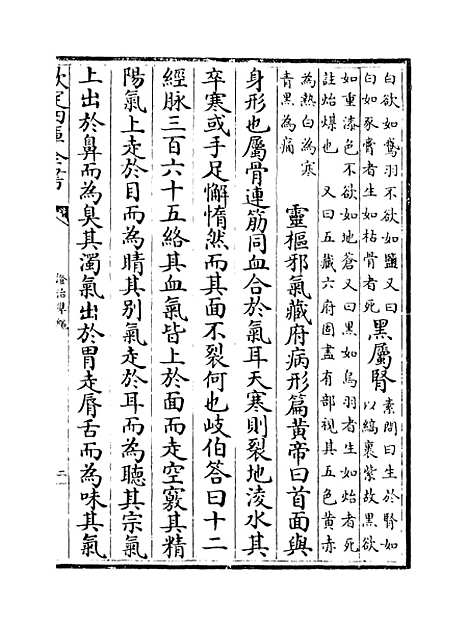 白欲如鵞羽不欲如鹽又曰
白如豕膏者生如枯骨者死
黑屬腎
素問曰生於腎如
以縞裹紫故黑欲
如重漆色不欲如地蒼又曰黑如烏羽者生如炲者死
註炲煤也　又曰五藏六府固盡有部視其五色黄赤
為熱白為寒
青黑為痛
靈樞邪氣藏府病形篇黄帝曰首面與
身形也屬骨連筋同血合於氣耳天寒則裂地淩水其
卒寒或手足懈惰然而其面不裂何也岐伯答曰十二
經脉三百六十五絡其血氣皆上於面而走空竅其精
陽氣上走於目而為睛其别氣走於耳而為聽其宗氣
上出於鼻而為臭其濁氣出於胃走脣舌而為味其氣
欽定四庫全書
證治準繩
二